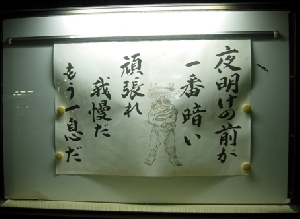 夜明けの前が
一番暗い
頑張れ
我慢だ
もう一息だ